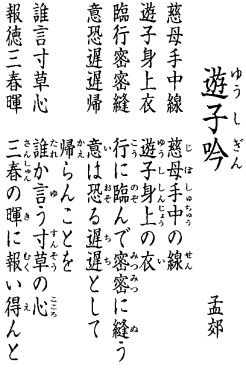 遊子吟
ゆうしぎん
孟郊
慈母手中線
遊子身上衣
臨行密密縫
意恐遅遅帰
誰言寸草心
報徳三春暉
慈母手中の線
じぼしゅちゅう せん
遊子身上の衣
ゆうししんじょう い
行に臨んで密密に縫う
こう のぞ みつみつ ぬ
意は恐る遅遅として
い おそ ちち
帰らんことを
かえ
誰か言う寸草の心
たれ ゆ すんそう こころ
三春の暉に報い得んと
さんしゅん き むく え